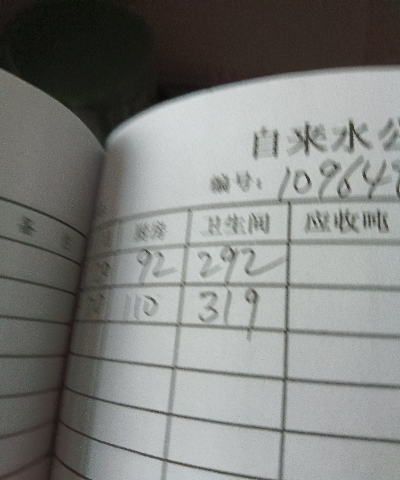 自来水公
编号: 109648
厨房 卫生间 应收吨
92 292
110 319